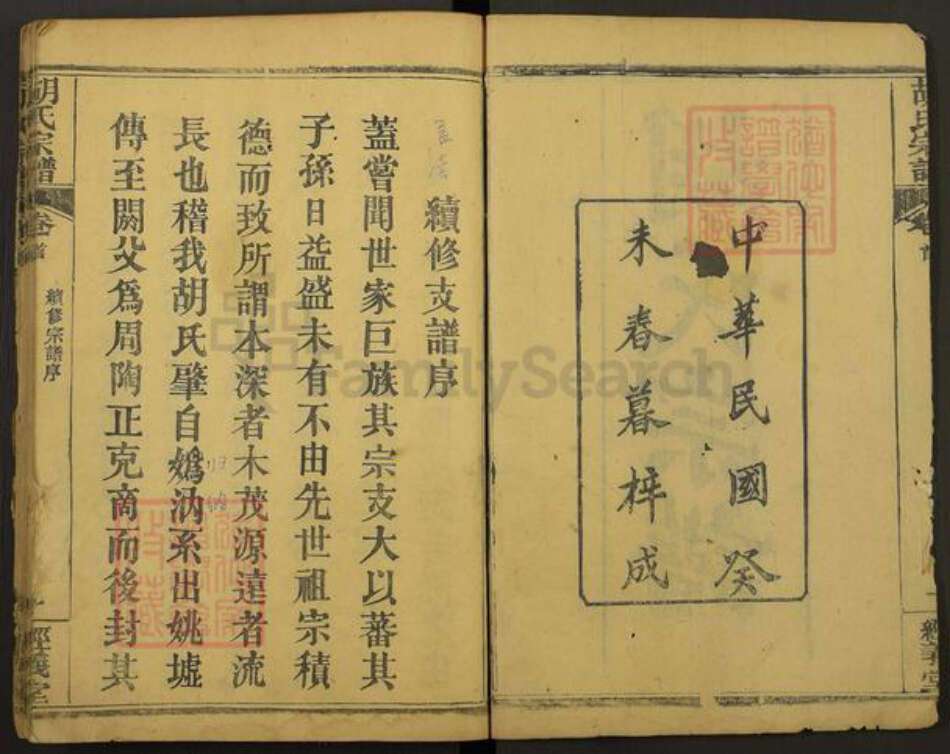 中華民國癸
未春暮梓成
續修支譜序
蓋嘗聞世家巨族其宗支大以蕃其
子孫日益盛未有不由先世祖宗積
德而致所謂本深者木茂源達者流
長也稽我胡氏肇自嬀汭系出姚墟
傳至閼父爲周陶正克商而後封其
胡氏宗譜
卷首
續修宗譜序
一
經義堂
胡氏宗譜
卷首
一
經義堂
FamilySearch